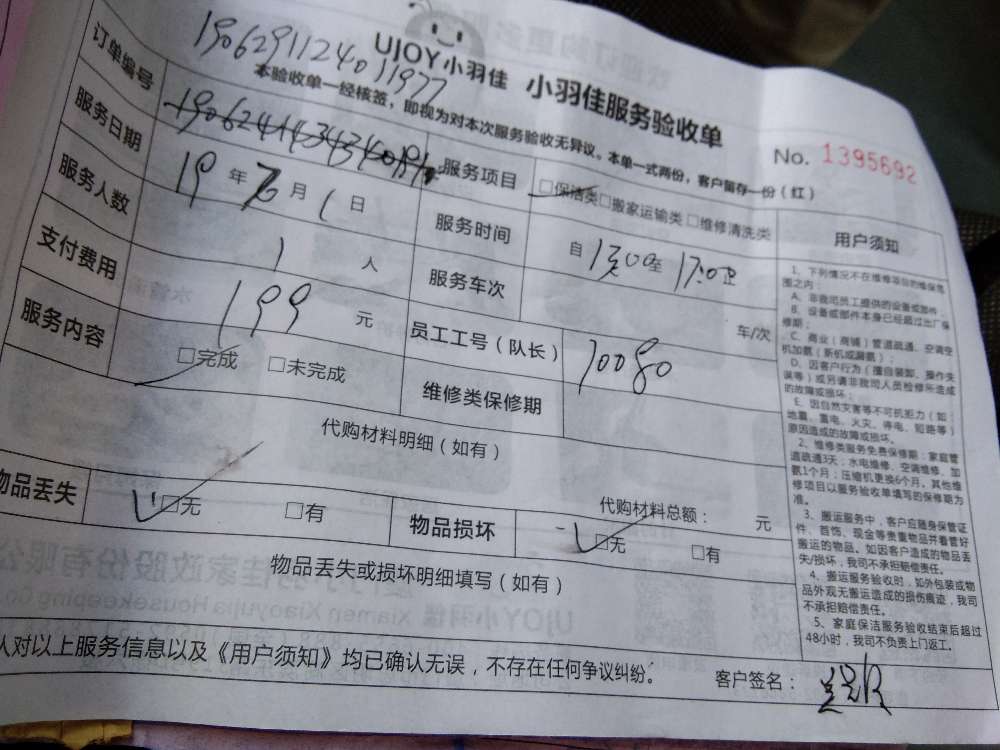 UJOY小羽佳 小羽佳服务验收单
1906291124011977
本验收单一经核签，即视为对本次服务验收无异议。本单一式两份，客户留存一份（红）
No. 1395692
订单编号
服务项目 □保洁类□搬家运输类□维修清洗类
服务日期 19年7月1日
服务时间 自13:00至17:00止
服务人数 1人
服务车次 车/次
支付费用 199元
员工工号（队长） 70080
服务内容 □完成 □未完成
维修类保修期
代购材料明细（如有）
代购材料总额： 元
物品丢失 □无 □有
物品损坏 □无 □有
物品丢失或损坏明细填写（如有）
人对以上服务信息以及《用户须知》均已确认无误，不存在任何争议纠纷。
客户签名：
用户须知
1、下列情况不在维修项目的维保范
围之内：
A、非我司员工提供的设备或部件；
B、设备或部件本身已经超过出厂保
修期；
C、商业（商铺）管道疏通、空调空
机加氟（新机或漏氟）；
D、因客户行为（擅自装卸、操作失
误等）或另请非我司人员检修所造成
的故障或损坏；
E、因自然灾害等不可抗拒力（如：
地震、雷电、火灾、停电、短路等）
原因造成的故障或损坏。
2、维修类服务免费保修期：家庭管
道疏通3天；水电维修、空调维修、加
氟1个月；压缩机更换6个月。其他维
修项目以服务验收单填写的保修期为
准。
3、搬运服务中，客户应随身保管证
件、首饰、现金等贵重物品并看管好
搬运的物品。如因客户造成的物品丢
失/损坏，我司不承担赔偿责任。
4、搬运服务验收时，如外包装或物
品外观无搬运造成的损伤痕迹，我司
不承担赔偿责任。
5、家庭保洁服务验收结束后超过
48小时，我司不负责上门返工。